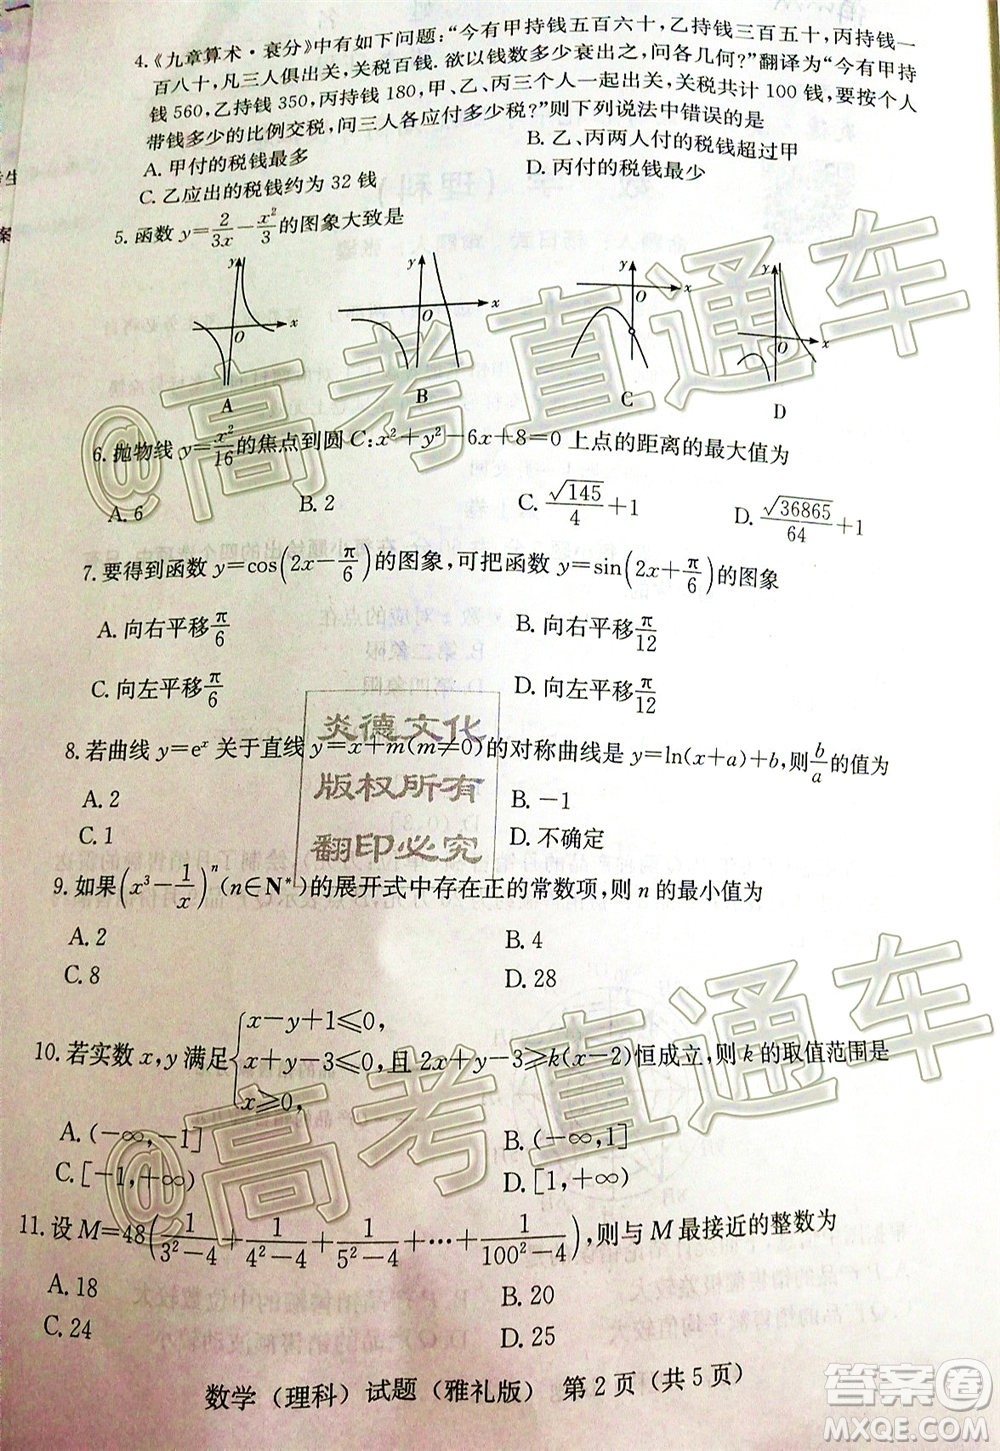 4.《九章算术·衰分》中有如下问题:“今有甲持钱五百六十,乙持钱三百五十,丙持钱一
百八十,凡三人俱出关,关税百钱.欲以钱数多少衰出之,问各几何?”翻译为“今有甲持
钱560,乙持钱350,丙持钱180,甲、乙、丙三个人一起出关,关税共计100钱,要按个人
带钱多少的比例交税,问三人各应付多少税?”则下列说法中错误的是
A.甲付的税钱最多 B.乙、丙两人付的税钱超过甲
C.乙应出的税钱约为32钱 D.丙付的税钱最少
5.函数y=2/3x-x²/3的图象大致是
y y y y
O x O x O x O x
A B C D
6.抛物线y=x²/16的焦点到圆C:x²+y²-6x+8=0上点的距离的最大值为
A.6 B.2 C.√145/4+1 D.√36865/64+1
7.要得到函数y=cos(2x-π/6)的图象,可把函数y=sin(2x+π/6)的图象
A.向右平移π/6 B.向右平移π/12
C.向左平移π/6 D.向左平移π/12
8.若曲线y=eˣ关于直线y=x+m(m≠0)的对称曲线是y=ln(x+a)+b,则b/a的值为
A.2 B.-1
C.1 D.不确定
炎德文化
版权所有
翻印必究
9.如果(x³-1/x)ⁿ(n∈N*)的展开式中存在正的常数项,则n的最小值为
A.2 B.4
C.8 D.28
10.若实数x,y满足{x-y+1≤0, x+y-3≤0, x≥0,且2x+y-3≥k(x-2)恒成立,则k的取值范围是
A.(-∞,-1] B.(-∞,1]
C.[-1,+∞) D.[1,+∞)
11.设M=48(1/3²-4+1/4²-4+1/5²-4+…+1/100²-4),则与M最接近的整数为
A.18 B.20
C.24 D.25
数学(理科)试题(雅礼版) 第2页(共5页)
@高考直通车
@高考直通车
答案圈
MXQE.COM